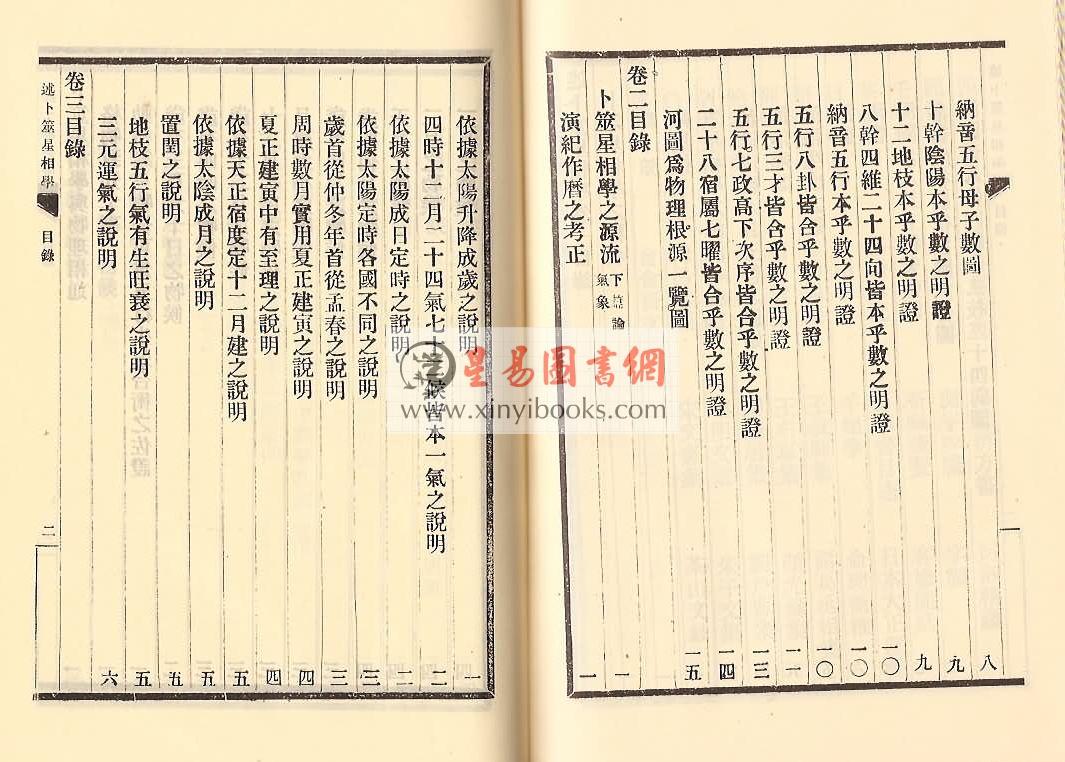 納音五行母子數圖 八
十幹陰陽本乎數之明證 九
十二地枝本乎數之明證 九
八幹四維二十四向皆本乎數之明證 一〇
納音五行本乎數之明證 一〇
五行八卦皆合乎數之明證 一〇
五行三才皆合乎數之明證
五行七政高下次序皆合乎數之明證 一三
二十八宿屬七曜皆合乎數之明證 一四
河圖爲物理根源一覽圖 一五
卷二目錄
卜筮星相學之源流 氣象 一
演紀作曆之考正 一
依據太陽升降成歲之說明 一
四時十二月二十四氣七十二候皆本一氣之說明 二
依據太陽成日定時之說明 二
依據太陽定時各國不同之說明 三
歲首從仲冬年首從孟春之說明 三
周時數月實用夏正建寅之說明 四
夏正建寅中有至理之說明 四
依據天正宿度定十二月建之說明 五
依據太陰成月之說明 五
置閏之說明 五
地枝五行氣有生旺衰之說明 五
三元運氣之說明 六
卷三目錄
述卜筮星相學 目錄 二
星易圖書網
www.xinyibooks.com